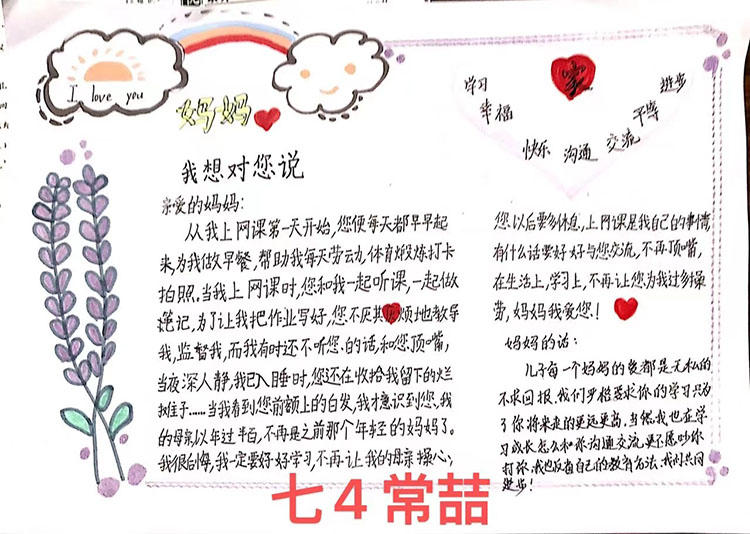 I love you
妈妈
学习
幸福
快乐
沟通
交流
平等
进步
我想对您说
亲爱的妈妈:
从我上网课第一天开始,您便每天都早早起
来,为我做早餐,帮助我每天劳动,体育煅炼打卡
拍照.当我上网课时,您和我一起听课,一起做
笔记,为了让我把作业写好,您不厌其烦地教导
我,监督我,而我有时还不听您.的话,和您顶嘴,
当夜深人静,我已入睡时,您还在收拾我留下的烂
摊子……当我看到您前额上的白发,我才意识到您,我
的母亲以年过半百,不再是之前那个年轻的妈妈了。
我很后悔,我一定要好好学习,不再让我的母亲操心;
您以后要多休息,上网课是我自己的事情,
有什么话要好好与您交流,不再顶嘴,
在生活上,学习上,不再让您为我过多操
劳,妈妈我爱您!
妈妈的话:
儿子每一个妈妈的爱都是无私的
不求回报.我们严格要求你的学习只为
了你将来走的更远更高,当然我也在学
习成长怎么和你沟通交流,更不愿吵你
打你.我也反省自己的教育方法.我们共同
进步!
七4常喆